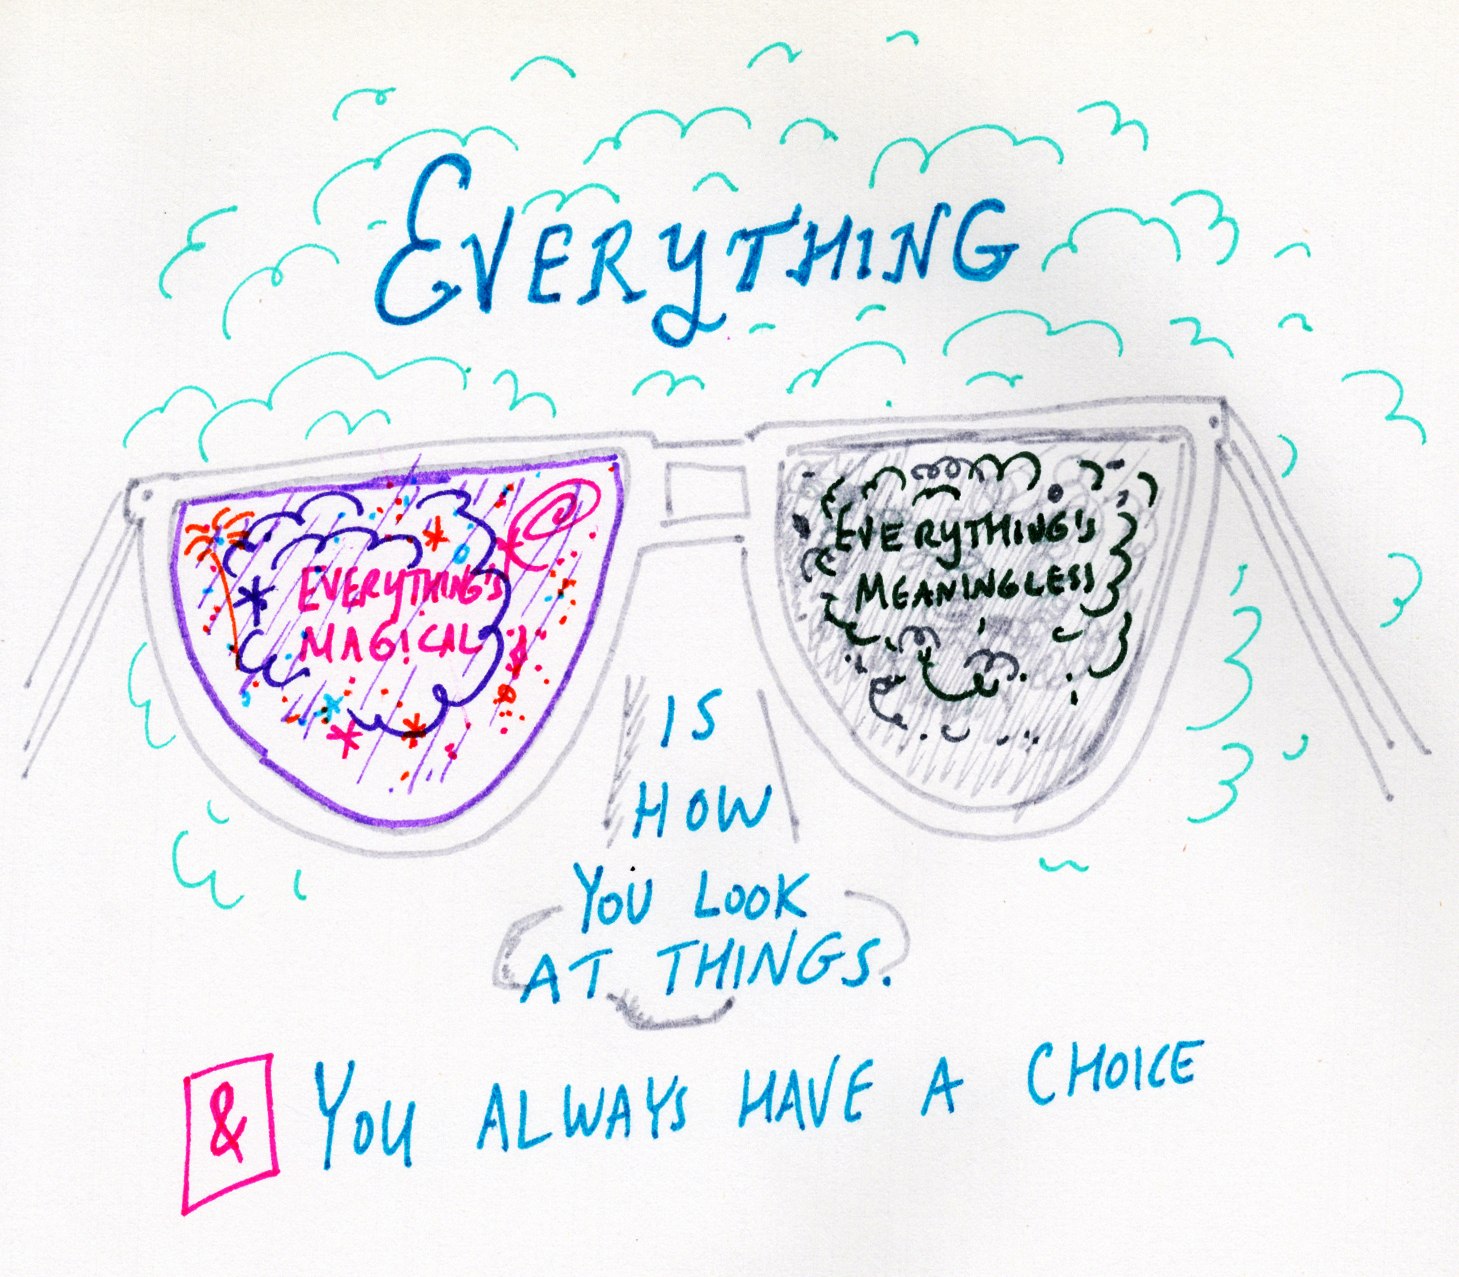 EVERYTHING
EVERYTHING'S
MAGICAL
EVERYTHING'S
MEANINGLESS
IS
HOW
YOU LOOK
AT THINGS.
& YOU ALWAYS HAVE A CHOICE